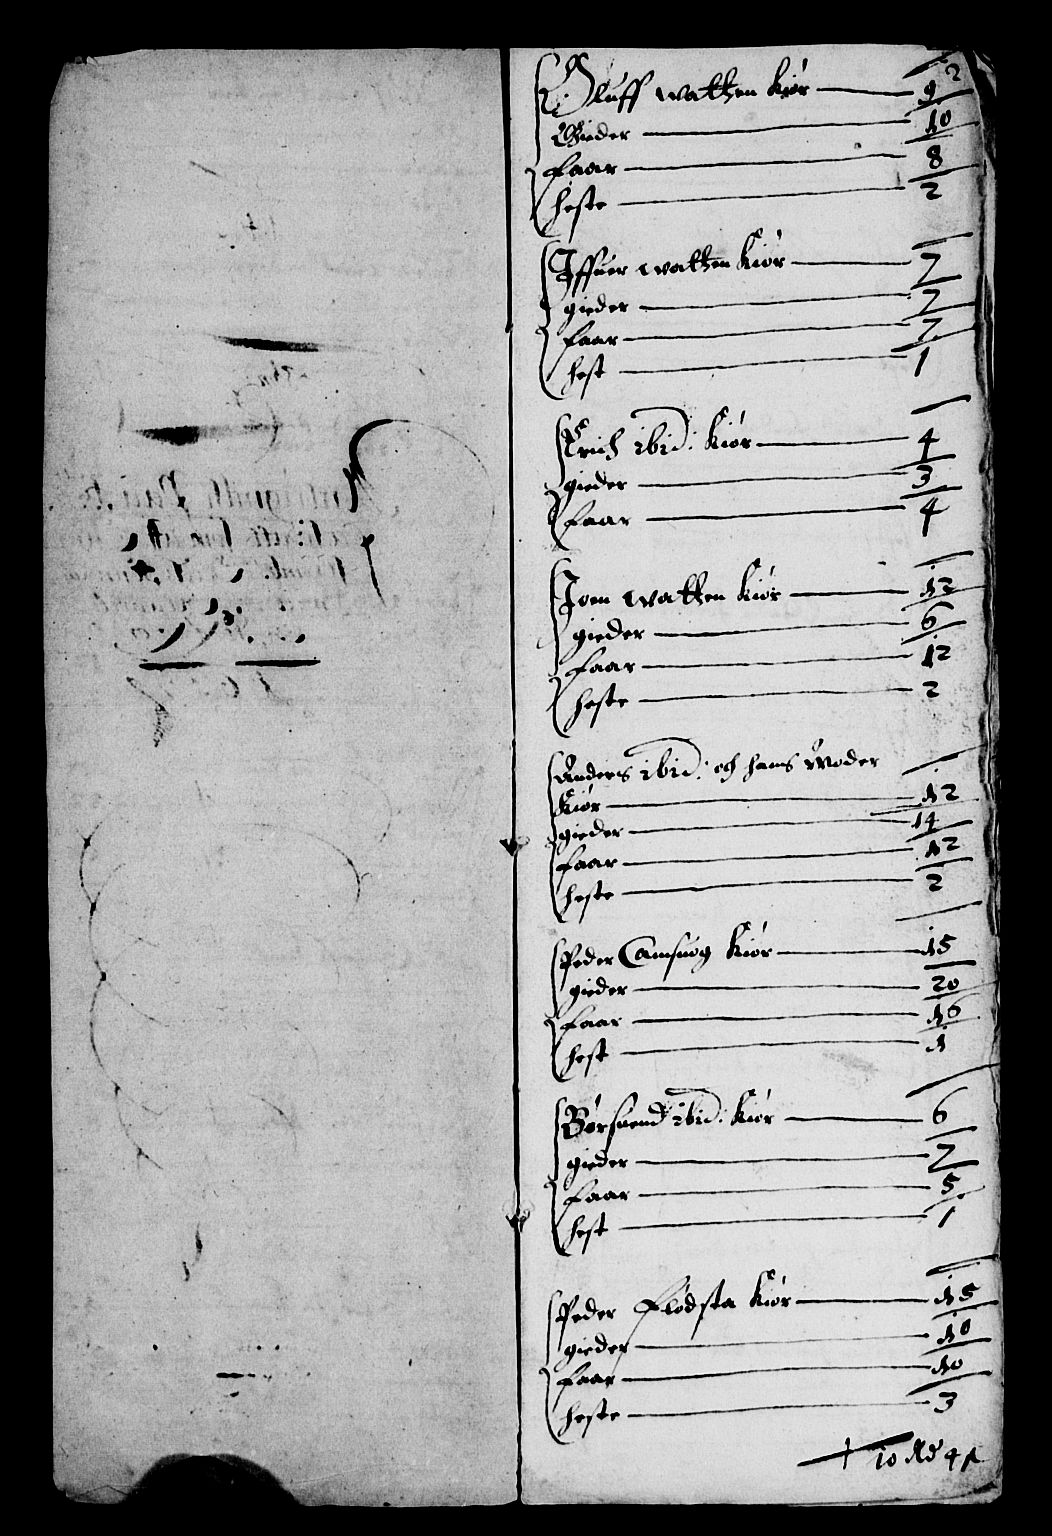 2
Oluff watzen Kiør — 9
Gieder — 10
faar — 8
heste — 2
Iffuer watzen Kiør — 7
gieder — 7
faar — 7
hest — 1
Erich ibid: Kiør — 4
gieder — 3
faar — 4
Joen watzen Kiør — 12
gieder — 6
faar — 12
heste — 2
Anders ibid: och hans Moder
Kiør — 12
gieder — 14
faar — 12
heste — 2
Peder Camsuog Kiør — 15
gieder — 20
faar — 16
hest — 1
Børsuend ibid: Kiør — 6
gieder — 7
faar — 5
hest — 1
Peder Flødsta Kiør — 15
gieder — 10
faar — 10
heste — 3
10 Rd 4